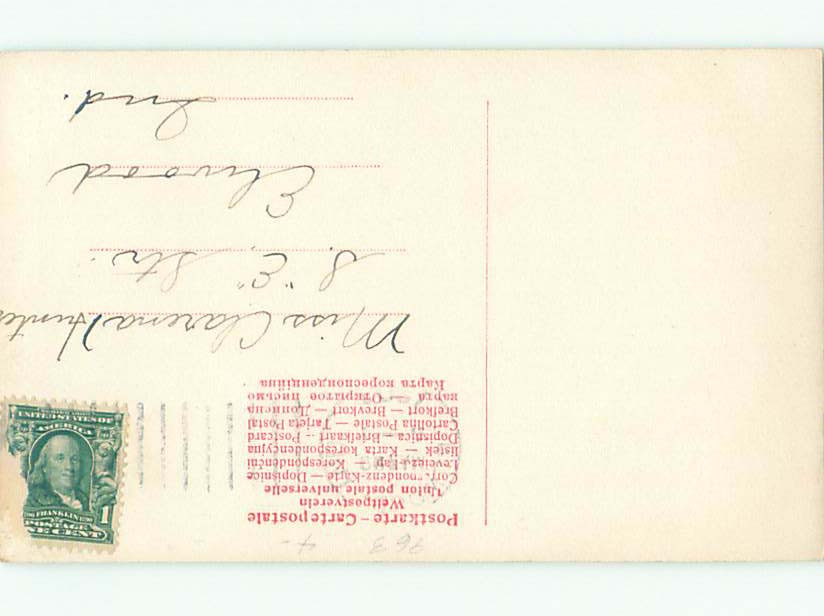 Postkarte – Carte postale
Weltpostverein
Union postale universelle
Corr.-nondenz-Karte – Dopisnice
Levelező-Lap – Korespondenční
lístek – Karta korespondencyjna
Dopisnica – Briefkaart – Postcard
Cartolina Postale – Tarjeta Postal
Brefkort – Brevkort – Дописница
карта – Открытое письмо
Карта кореспонденційна
Miss Clarena Hunte
S. "E" Str.
Elwood
Ind.
763
4-
UNITED STATES OF
AMERICA
FRANKLIN 1790
POSTAGE 1
NE CENT